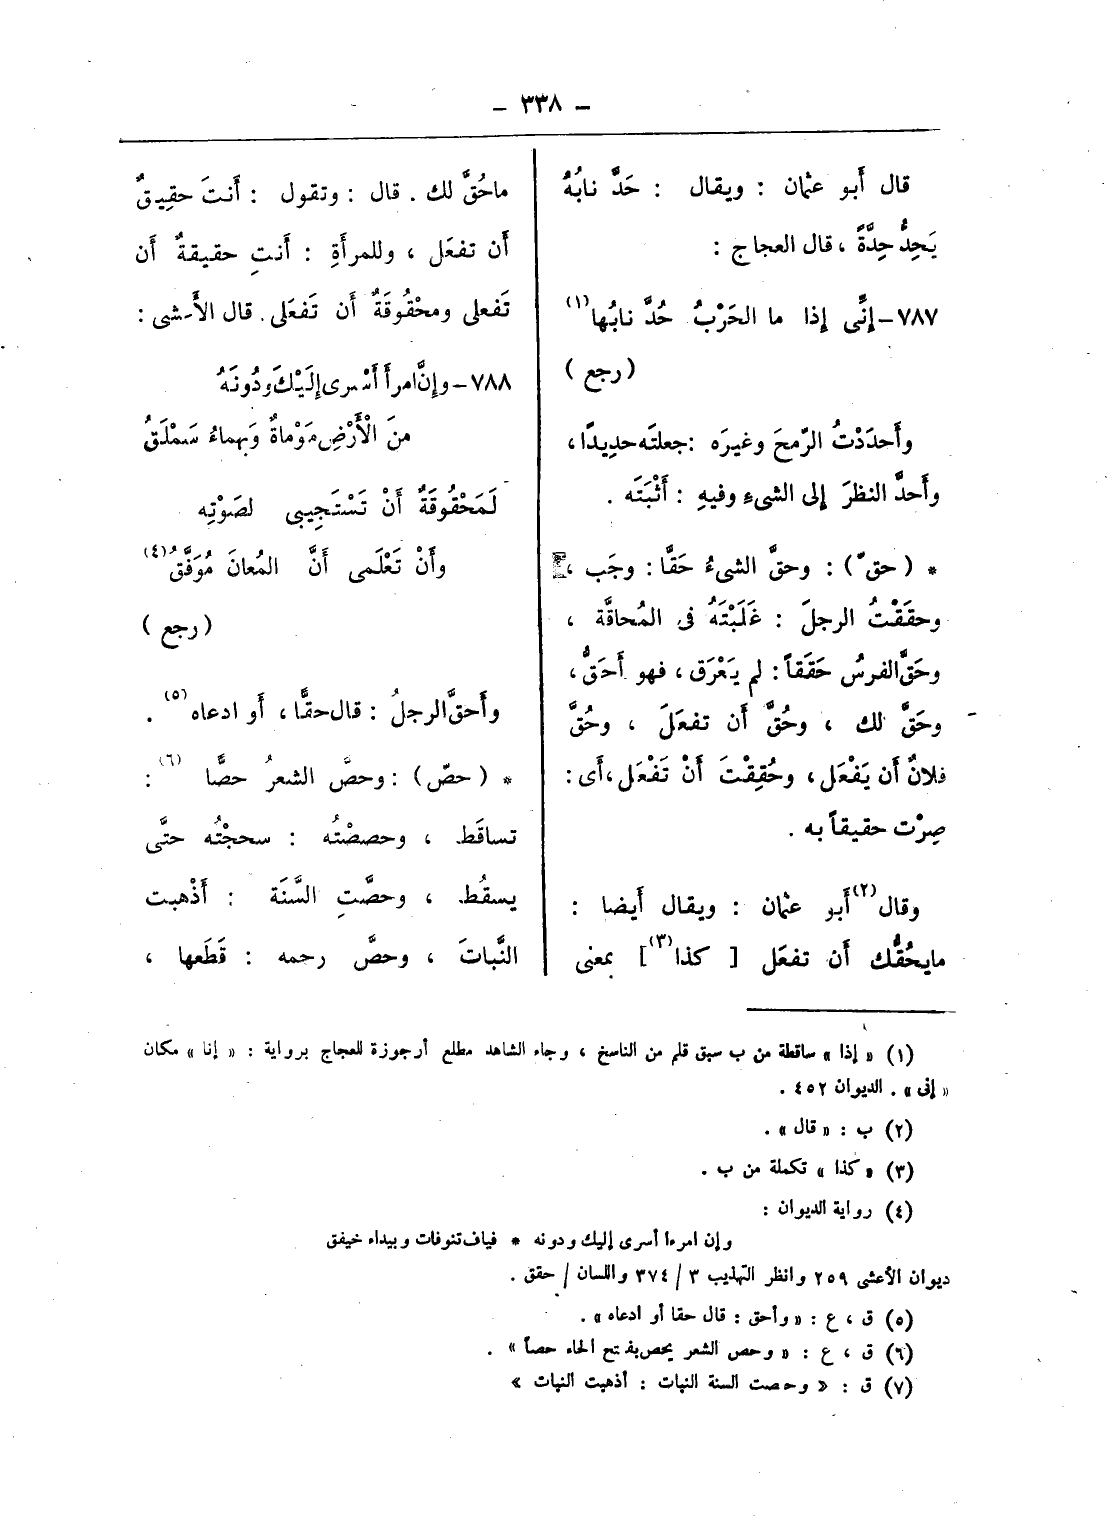 - ٣٣٨ -
قال أَبو عثمان : ويقال : حَدَّ نابُهُ
يَحِدُّ حِدَّةً ، قال العجاج :
٧٨٧ – إِنِّى إِذا ما الحَرْبُ حُدَّ نابُها (١)
( رجع )
وأَحدَدْتُ الرّمحَ وغيرَه : جعلتَه حدِيدًا ،
وأَحدَّ النظرَ إِلى الشىءِ وفيهِ : أَثْبَتَه .
* ( حقّ ) : وحقَّ الشىءُ حَقًّا : وجَب ،
وحقَقْتُ الرجلَ : غَلَبْتَهُ فى المُحاقَّة ،
وحَقَّ الفرسُ حَقَقاً : لم يَعْرَق ، فهو أَحَقُّ ،
وحَقَّ لك ، وحُقَّ أَن تفعَلَ ، وحُقَّ
فلانٌ أَن يَفْعَل ، وحُقِقْتَ أَنْ تَفْعَل ، أَى :
صِرْت حقيقاً به .
وقال (٢) أَبو عثمان : ويقال أَيضا :
مايحُقُّك أَن تفعَل [ كذا (٣) ] بمعنى
ماحُقَّ لك . قال : وتقول : أَنتَ حقِيقٌ
أَن تفعَل ، وللمرأَةِ : أَنتِ حقيقةٌ أَن
تَفعلى ومحْقُوقَةٌ أَن تَفعَلى . قال الأَعشى :
٧٨٨ – وإِنَّ امرأَ أَسْرى إِلَيْكَ ودُونَهُ
منَ الْأَرْضِ مَوْماةٌ وَيهماءُ سَمْلَقُ
لَمَحْقُوقَةٌ أَنْ تَسْتَجِيبى لصَوْتِه
وأَنْ تَعْلَمى أَنَّ المُعانَ مُوَفَّقُ (٤)
( رجع )
وأَحقَّ الرجلُ : قال حقًّا ، أَو ادعاه (٥) .
* ( حصّ ) : وحصَّ الشعرُ حصًّا (٦) :
تساقَط ، وحصصْتُه : سحجْتُه حتَّى
يسقُط ، وحصَّتِ السَّنَة : أَذْهبت
النَّباتَ ، وحصَّ رحمه : قَطَعها ،
(١) « إذا » ساقطة من ب سبق قلم من الناسخ ، وجاء الشاهد مطلع أرجوزة للعجاج برواية : « إنا » مكان
« إنى » . الديوان ٤٥٢ .
(٢) ب : « قال » .
(٣) « كذا » تكملة من ب .
(٤) رواية الديوان :
وإن امرءا أسرى إليك ودونه * فياف تنوفات وبيداء خيفق
ديوان الأعشى ٢٥٩ وانظر التهذيب ٣ / ٣٧٤ واللسان / حقق .
(٥) ق ، ع : « وأحق : قال حقا أو ادعاه » .
(٦) ق ، ع : « وحص الشعر يحص بفتح الحاء حصاً » .
(٧) ق : « وحصت السنة النبات : أذهبت النبات »